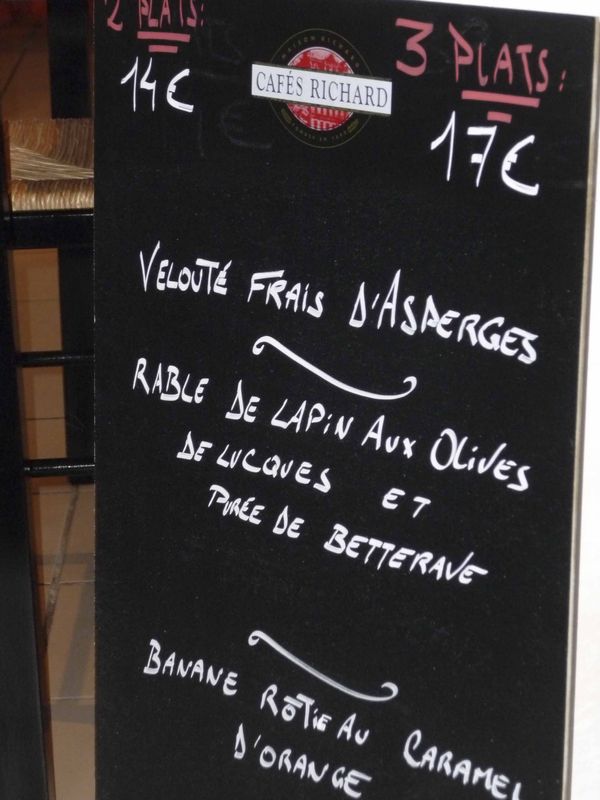 2 PLATS:
14€
CAFÉS RICHARD
3 PLATS:
17€
VELOUTÉ FRAIS D'ASPERGES
RABLE DE LAPIN AUX OLIVES
DE LUCQUES ET
PURÉE DE BETTERAVE
BANANE RÔTIE AU CARAMEL
D'ORANGE